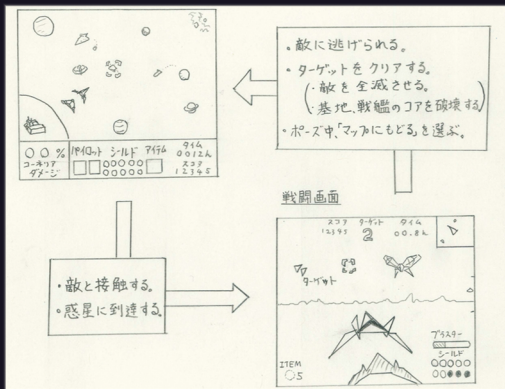 ○○%
コーネリア
ダメージ
パイロット シールド アイテム
タイム
0012h
スコア
12345
・敵に逃げられる。
・ターゲットをクリアする。
(・敵を全滅させる。
・基地、戦艦のコアを破壊する)
・ポーズ中、「マップにもどる」を選ぶ。
・敵と接触する。
・惑星に到達する。
戦闘画面
スコア ターゲット タイム
12345 2 00.8h
ターゲット
ブラスター
シールド
ITEM
○5